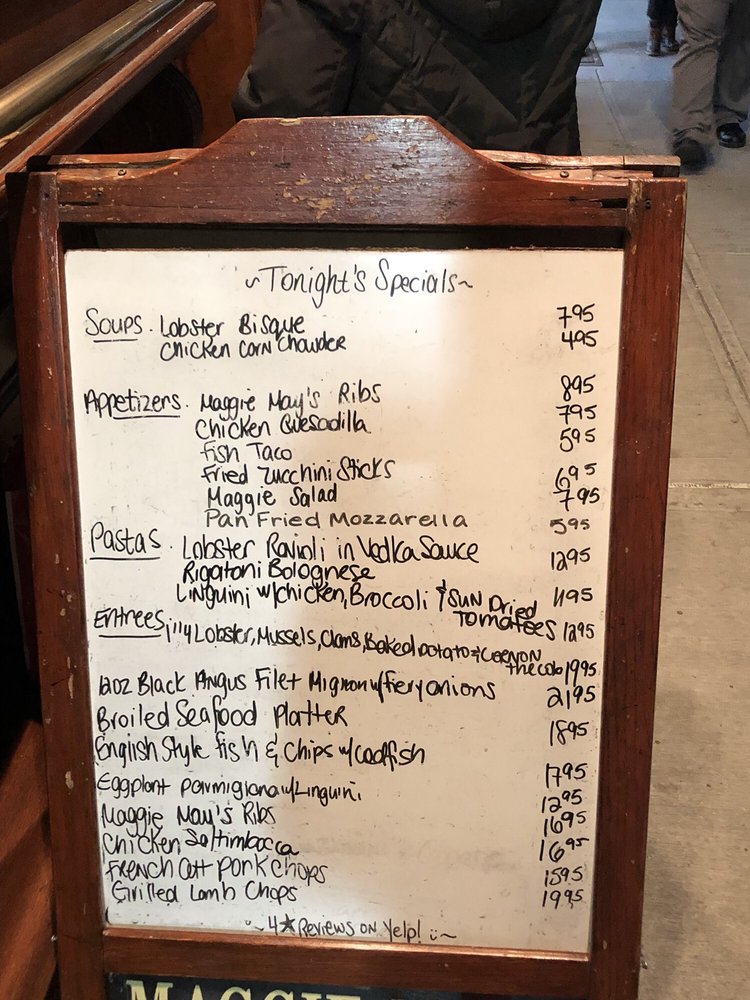 ~Tonight's Specials~
Soups. Lobster Bisque 795
Chicken Corn Chowder 495
Appetizers. Maggie May's Ribs 895
Chicken Quesadilla 795
Fish Taco 595
Fried Zucchini Sticks 695
Maggie Salad 795
Pan Fried Mozzarella 595
Pastas. Lobster Ravioli in Vodka Sauce 1295
Rigatoni Bolognese
Linguini w/chicken, Broccoli & Sun Dried 1195
Tomatoes 1295
Entrees, 1 1/4 Lobster, Mussels, Clams, Baked potato & corn on
the cob 1995
12oz Black Angus Filet Mignon w/fiery onions 2195
Broiled Seafood Platter 1895
English Style fish & Chips w/codfish
1795
Eggplant parmigiana w/Linguini, 1295
Maggie May's Ribs 1695
Chicken Saltimbocca 1695
French Cut Pork Chops 1595
Grilled Lamb Chops 1995
~4★Reviews on Yelp! :~
MAGGIE